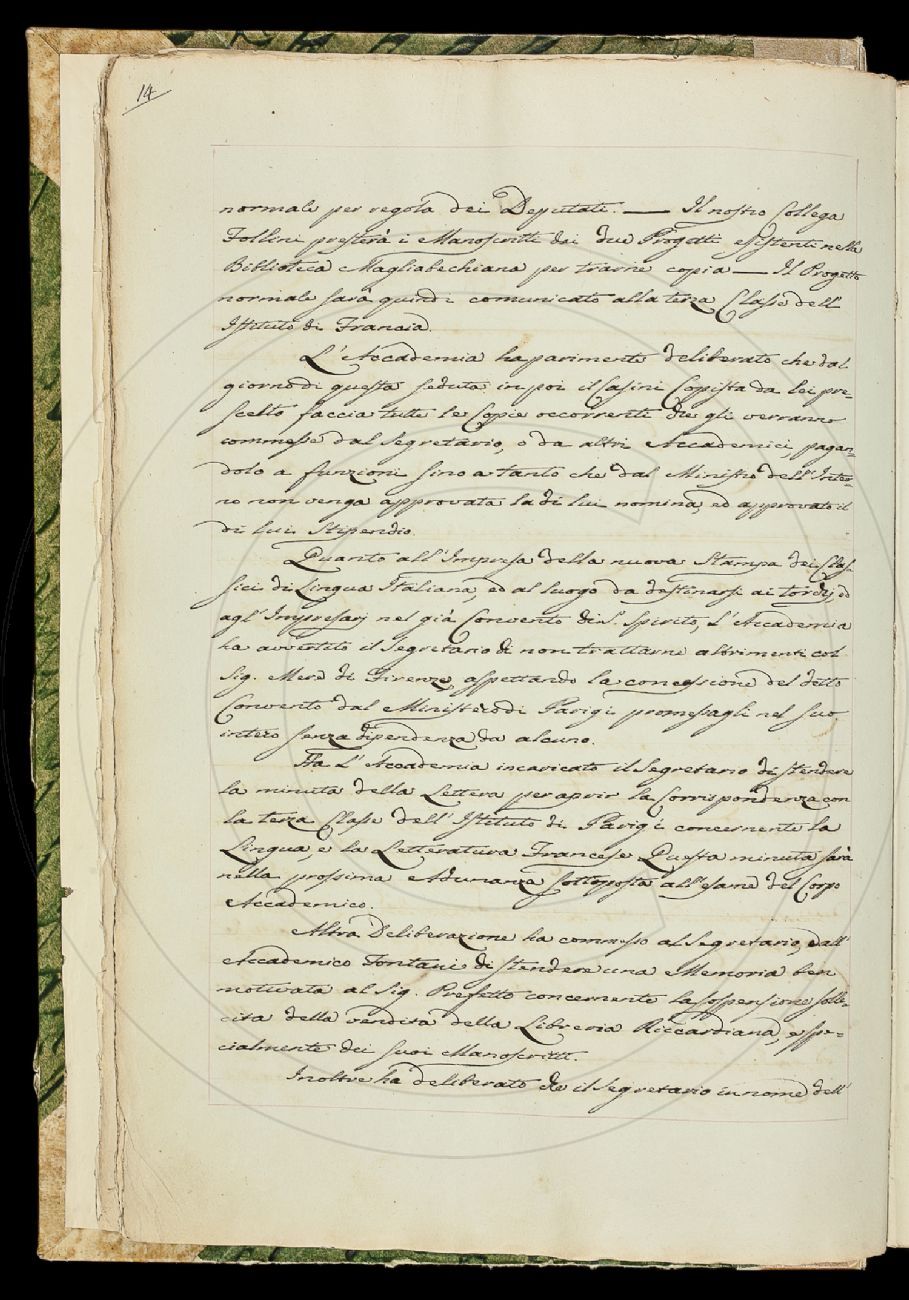 14
normale per regola dei Deputati. — Il nostro Collega
Follini presterà i Manoscritti dei due Progetti esistenti nella
Biblioteca Magliabechiana per trarne copia — Il Progetto
normale sarà quindi comunicato alla terza Classe dell'
Istituto di Francia.
L'Accademia ha parimente deliberato che dal
giorno di questa seduta in poi il Casini Copista da lei pre-
scelto faccia tutte le Copie occorrenti che gli verranno
commesse dal Segretario, o da altri Accademici pagan-
dolo a funzioni sino a tanto che dal Ministro dell'Inter-
no non venga approvata la di lui nomina, ed approvato il
di lui Stipendio.
Quanto all'Impresa della nuova Stampa dei Clas-
sici di Lingua Italiana, ed al luogo da destinarsi ai torchj, ed
agl'Impresarj nel già Convento di S. Spirito, l'Accademia
ha avvertito il Segretario di non trattarne altrimenti col
Sig. Mere di Firenze, aspettando la concessione del detto
Convento dal Ministero di Parigi promessagli nel suo
intero senza dipendenza da alcuno.
Ha L'Accademia incaricato il Segretario di stendere
la minuta della Lettera per aprir la Corrispondenza con
la terza Classe dell'Istituto di Parigi concernente la
Lingua, e la Letteratura Francese. Questa minuta sarà
nella prossima Adunanza sottoposta all'esame del Corpo
Accademico.
Altra Deliberazione ha commesso al Segretario, e all'
Accademico Fontani di stendere una Memoria ben
motivata al Sig. Prefetto concernente la sospensione solle-
cita della vendita della Libreria Riccardiana, e spe-
cialmente dei suoi Manoscritti.
Inoltre ha deliberato che il Segretario in nome dell'